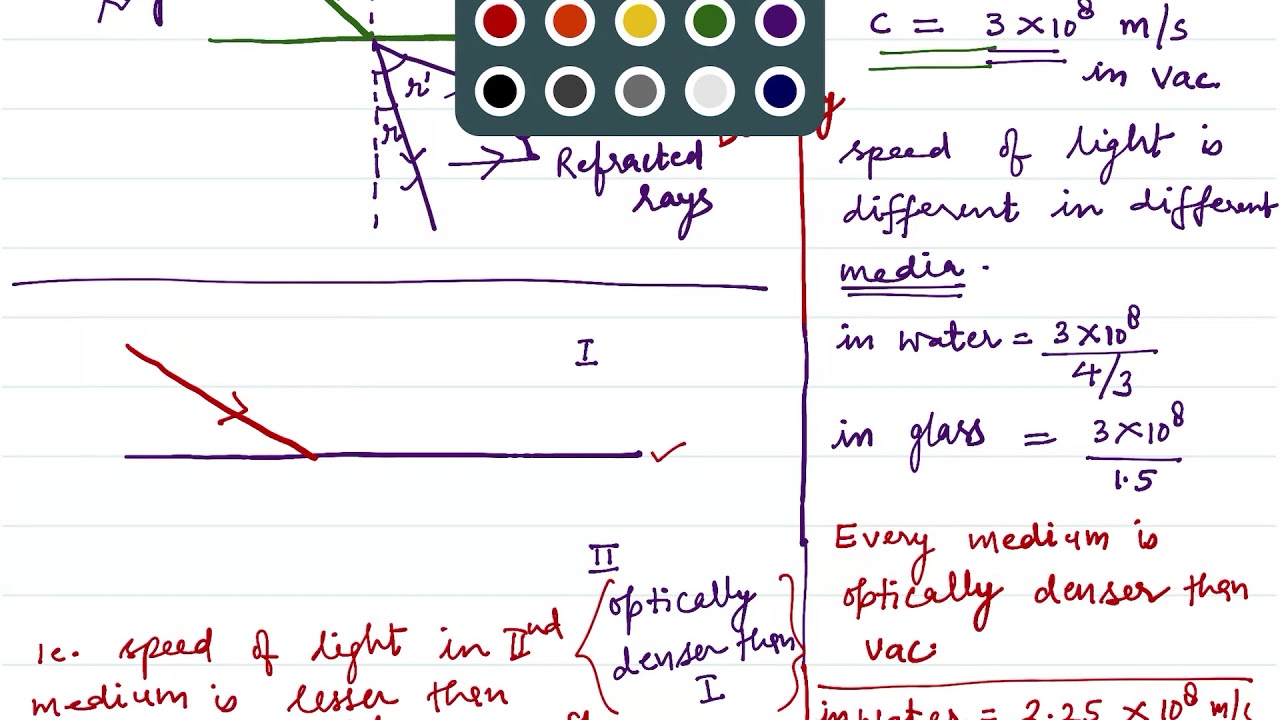 r'
r
Refracted
rays
I
II
optically
denser than
I
ie. speed of light in IInd
medium is lesser then
C = 3 × 10⁸ m/s
in vac.
speed of light is
different in different
media.
in water = 3×10⁸
4/3
in glass = 3×10⁸
1.5
Every medium is
optically denser then
vac.
in water = 2.25 × 10⁸ m/s